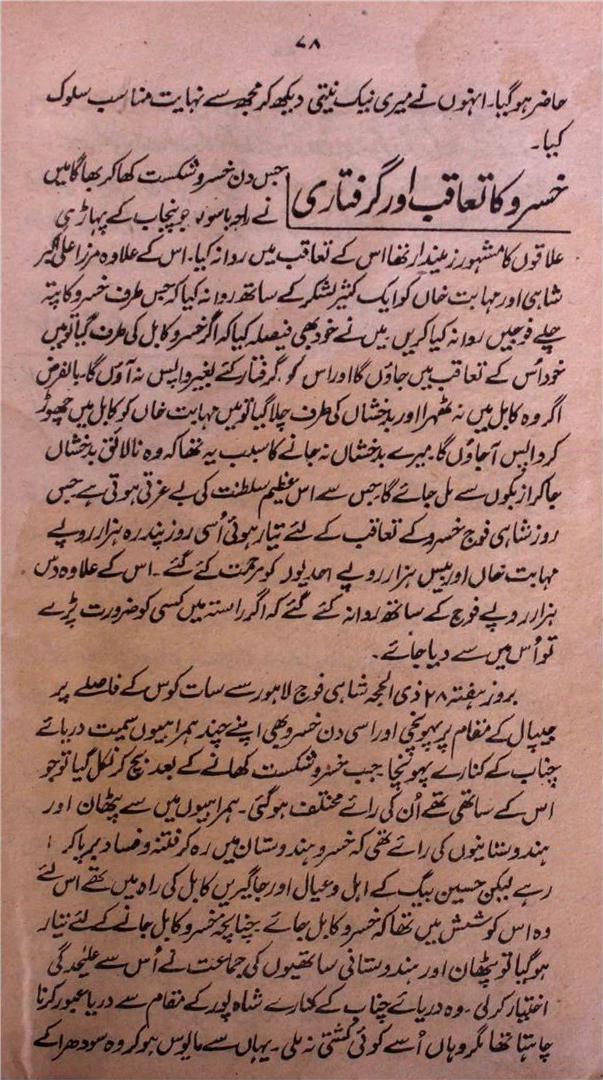 ۷۸
حاضر ہو گیا۔ انہوں نے میری نیک نیتی دیکھ کر مجھ سے نہایت مناسب سلوک
کیا۔
خسرو کا تعاقب اور گرفتاری
جس دن خسرو شکست کھا کر بھاگا میں
نے راجہ باسو، جو پنجاب کے پہاڑی
علاقوں کا مشہور زمیندار تھا اس کے تعاقب میں روانہ کیا۔ اس کے علاوہ مرزا علی اکبر
شاہی اور مہابت خاں کو ایک کثیر لشکر کے ساتھ روانہ کیا کہ جس طرف خسرو کا پتہ
چلے فوجیں روانہ کیا کریں۔ میں نے خود بھی فیصلہ کیا کہ اگر خسرو کابل کی طرف گیا تو میں
خود اُس کے تعاقب میں جاؤں گا اور اس کو گرفتار کئے بغیر واپس نہ آؤں گا۔ بالفرض
اگر وہ کابل میں نہ ٹھہرا اور بدخشاں کی طرف چلا گیا تو میں مہابت خاں کو کابل میں چھوڑ
کر واپس آجاؤں گا۔ میرے بدخشاں نہ جانے کا سبب یہ تھا کہ وہ نالائق بدخشاں
جا کر ازبکوں سے مل جائے گا جس سے اس عظیم سلطنت کی بے عزتی ہوتی ہے جس
روز شاہی فوج خسرو کے تعاقب کے لئے تیار ہوئی اُسی روز پندرہ ہزار روپے
مہابت خاں اور بیس ہزار روپے احدیوں کو مرحمت کئے گئے۔ اس کے علاوہ دس
ہزار روپے فوج کے ساتھ روانہ کئے گئے کہ اگر راستہ میں کسی کو ضرورت پڑے
تو اُس میں سے دیا جائے۔
بروز ہفتہ ۲۸ ذی الحجہ شاہی فوج لاہور سے سات کوس کے فاصلے پر
جیپال کے مقام پر پہونچی اور اسی دن خسرو بھی اپنے چند ہمراہیوں سمیت دریائے
چناب کے کنارے پہونچا جب خسرو شکست کھانے کے بعد بچ کر نکل گیا تو جو
اس کے ساتھی تھے اُن کی رائے مختلف ہو گئی۔ ہمراہیوں میں سے پٹھان اور
ہندوستانیوں کی رائے تھی کہ خسرو ہندوستان میں رہ کر فتنہ و فساد برپا کر
رہے لیکن حسین بیگ کے اہل و عیال اور جاگیریں کابل کی راہ میں تھے اس لئے
وہ اس کوشش میں تھا کہ خسرو کابل جائے چنانچہ خسرو کابل جانے کے لئے تیار
ہو گیا تو پٹھان اور ہندوستانی ساتھیوں کی جماعت نے اُس سے علیحدگی
اختیار کر لی۔ وہ دریائے چناب کے کنارے شاہ پور کے مقام سے دریا عبور کرنا
چاہتا تھا مگر وہاں اُسے کوئی کشتی نہ ملی۔ یہاں سے مایوس ہو کر وہ سودھرا کے